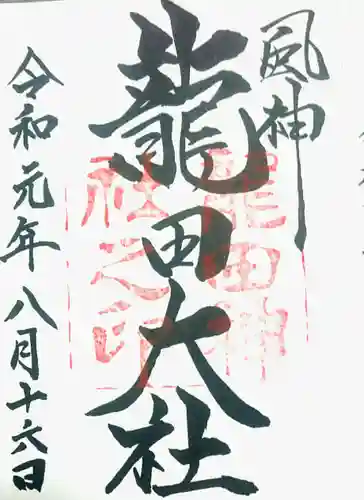 風神
龍田大社
令和元年八月十六日
龍田神
社之印